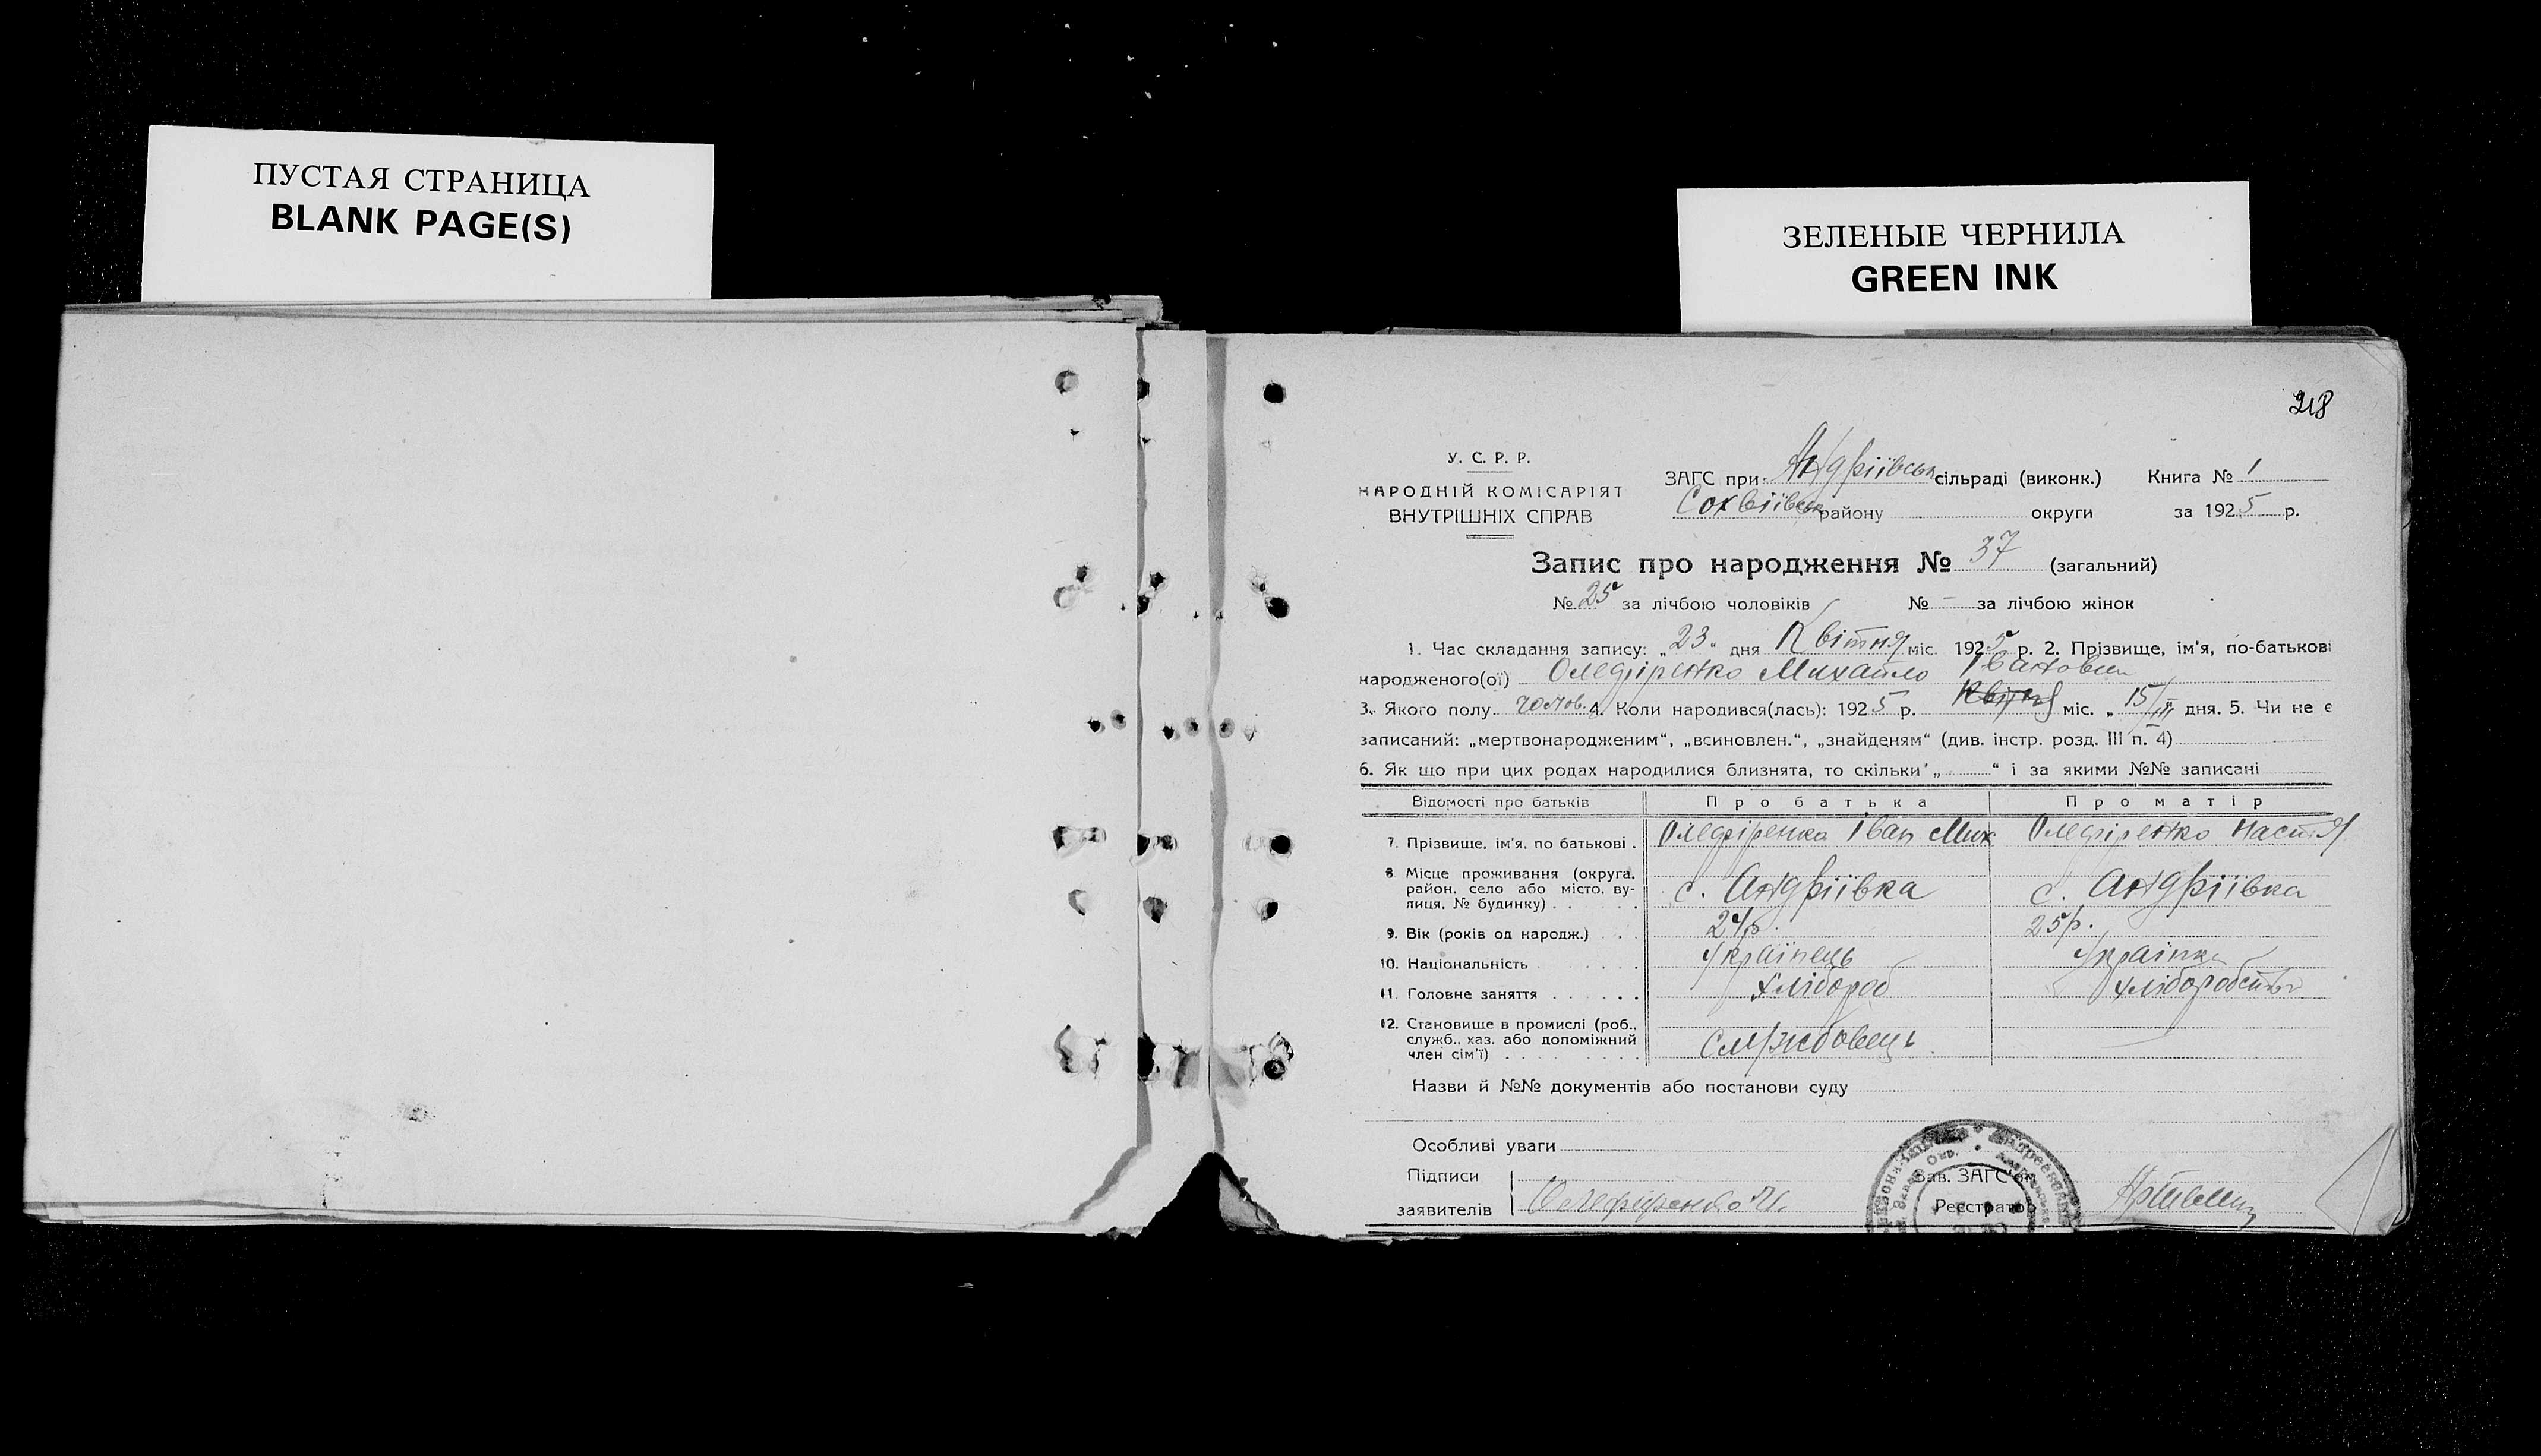 ПУСТАЯ СТРАНИЦА
BLANK PAGE(S)
ЗЕЛЕНЫЕ ЧЕРНИЛА
GREEN INK
218
У. С. Р. Р.
НАРОДНІЙ КОМІСАРІЯТ
ВНУТРІШНІХ СПРАВ
ЗАГС при Андріївськ сільраді (виконк.) Книга № 1
району округи за 1925 р.
Запис про народження № 37 (загальний)
№ 25 за лічбою чоловіків № — за лічбою жінок
1. Час складання запису: „23“ дня Квітня міс. 1925 р. 2. Прізвище, ім'я, по-батькові
народженого(ої) Олефіренко Михайло Іванович
3. Якого полу чолов. 4. Коли народився(лась): 1925 р. Квітня міс. „15/III дня. 5. Чи не є
записаний: „мертвонародженим“, „всиновлен.“, „знайденям“ (див. інстр. розд. III п. 4)
6. Як що при цих родах народилися близнята, то скільки „ “ і за якими №№ записані
Відомості про батьків Про батька Про матір
7. Прізвище, ім'я, по батькові . Олефіренко Іван Мих Олефіренко Настя
8. Місце проживання (округа, район, село або місто, ву-
лиця, № будинку) . . . . . с. Андріївка с. Андріївка
9. Вік (років од народж.) . . . 24р. 25р.
10. Національність . . . . . . Українець Українка
11. Головне заняття . . . . . . Хлібороб Хліборобство
12. Становище в промислі (роб.,
служб., хаз. або допоміжний
член сім'ї) . . . . . . . . Службовець
Назви й №№ документів або постанови суду
Особливі уваги
Підписи Зав. ЗАГС'ом
заявителів Олефиренко И. Реєстратор